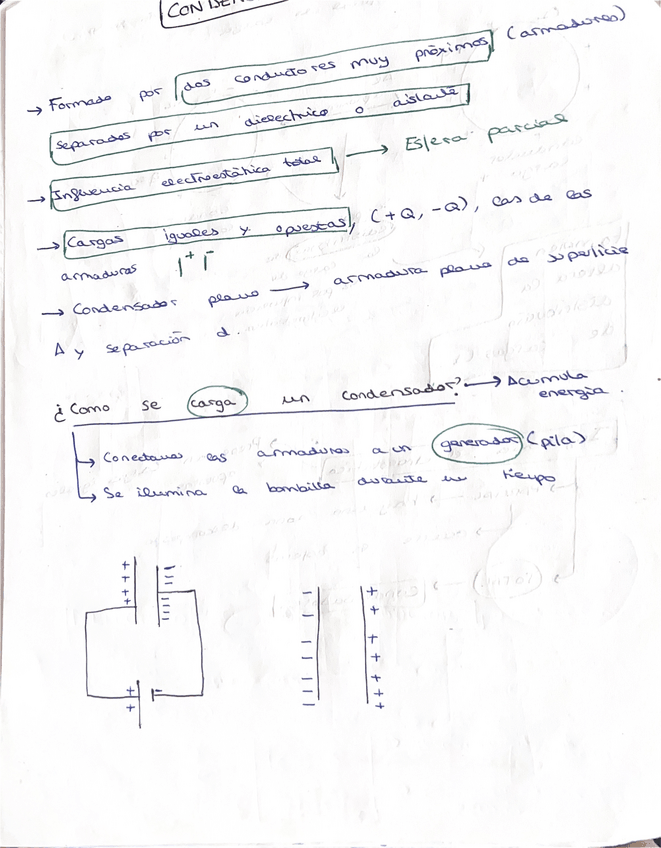 → Formado por dos conductores muy próximos (armadures)
separados por un dielectrico o aislante
→ Influencia electrostática total → Esfera parcial
→ Cargas iguales y opuestas, (+Q, -Q), las de las
armaduras
→ Condensador plano → armadura plana de superficie
A y separación d.
¿Como se carga un condensador? → Acumula
energia.
→ Conectamos las armaduras a un generador (pila)
→ Se ilumina la bombilla durante un tiempo